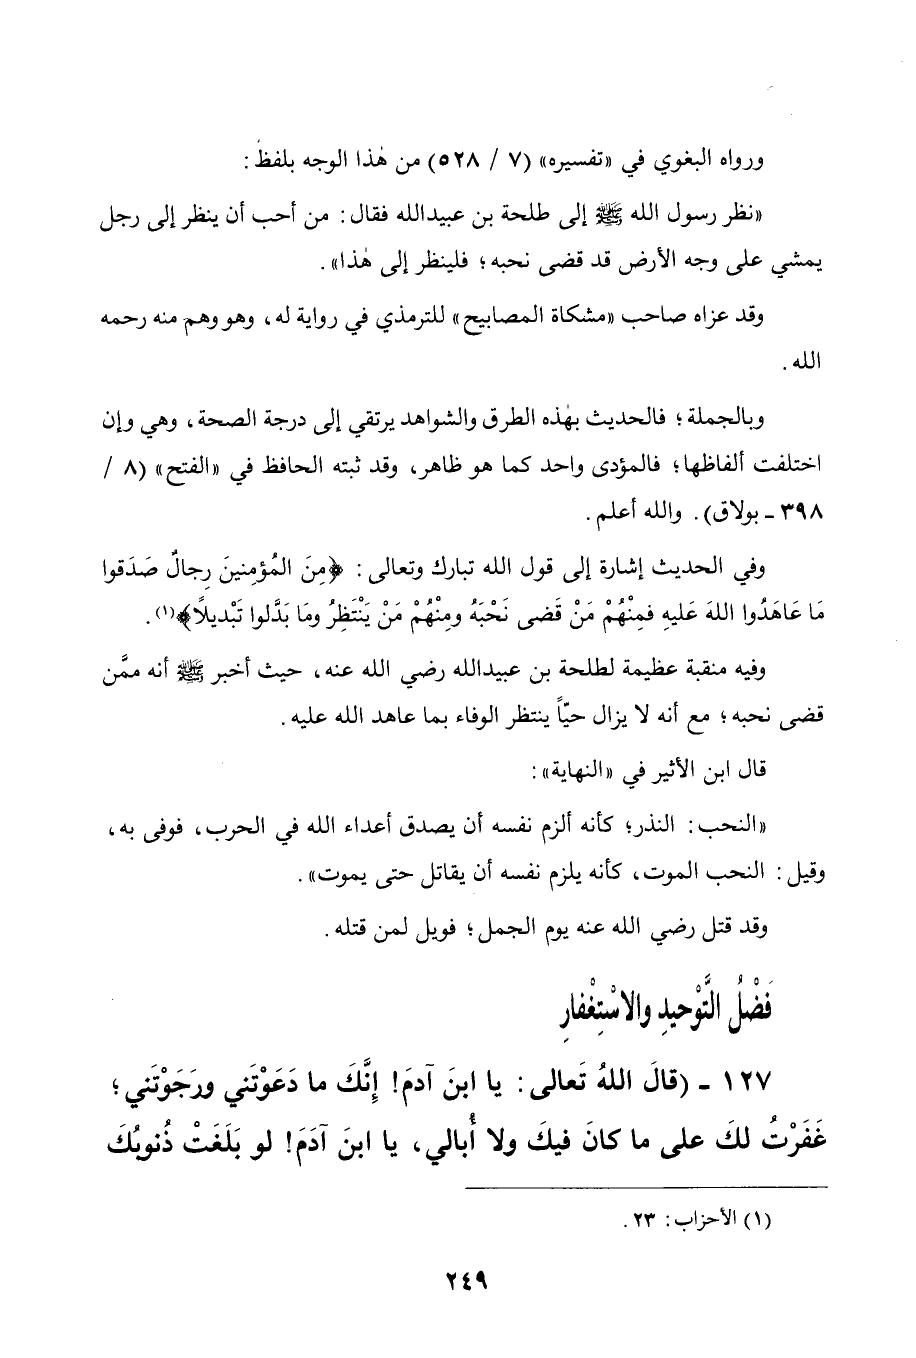 ورواه البغوي في «تفسيره» (٧ / ٥٢٨) من هٰذا الوجه بلفظ :
«نظر رسول الله ﷺ إلى طلحة بن عبيدالله فقال : من أحب أن ينظر إلى رجل
يمشي على وجه الأرض قد قضى نحبه ؛ فلينظر إلى هٰذا» .
وقد عزاه صاحب «مشكاة المصابيح» للترمذي في رواية له ، وهو وهم منه رحمه
الله .
وبالجملة ؛ فالحديث بهٰذه الطرق والشواهد يرتقي إلى درجة الصحة ، وهي وإن
اختلفت ألفاظها ؛ فالمؤدى واحد كما هو ظاهر ، وقد ثبته الحافظ في «الفتح» (٨ /
٣٩٨ ـ بولاق) . والله أعلم .
وفي الحديث إشارة إلى قول الله تبارك وتعالى : ﴿مِنَ المُؤمِنينَ رِجالٌ صَدَقوا
مَا عَاهَدُوا اللهَ عَليهِ فمِنْهُمْ مَنْ قَضى نَحْبَهُ ومِنْهُمْ مَنْ يَنْتَظِرُ ومَا بَدَّلوا تَبْديلاً﴾(١) .
وفيه منقبة عظيمة لطلحة بن عبيدالله رضي الله عنه ، حيث أخبر ﷺ أنه ممَّن
قضى نحبه ؛ مع أنه لا يزال حيّاً ينتظر الوفاء بما عاهد الله عليه .
قال ابن الأثير في «النهاية» :
«النحب : النذر ؛ كأنه ألزم نفسه أن يصدق أعداء الله في الحرب ، فوفى به ،
وقيل : النحب الموت ، كأنه يلزم نفسه أن يقاتل حتى يموت» .
وقد قتل رضي الله عنه يوم الجمل ؛ فويل لمن قتله .
فَضْلُ التَّوْحيدِ والاسْتِغْفارِ
١٢٧ ـ (قالَ اللهُ تَعالى : يا ابنَ آدمَ ! إِنَّكَ ما دَعَوْتَني ورَجَوْتَني ؛
غَفَرْتُ لكَ على ما كانَ فيكَ ولا أُبالي ، يا ابنَ آدَمَ ! لو بَلَغَتْ ذُنوبُكَ
(١) الأحزاب : ٢٣ .
٢٤٩